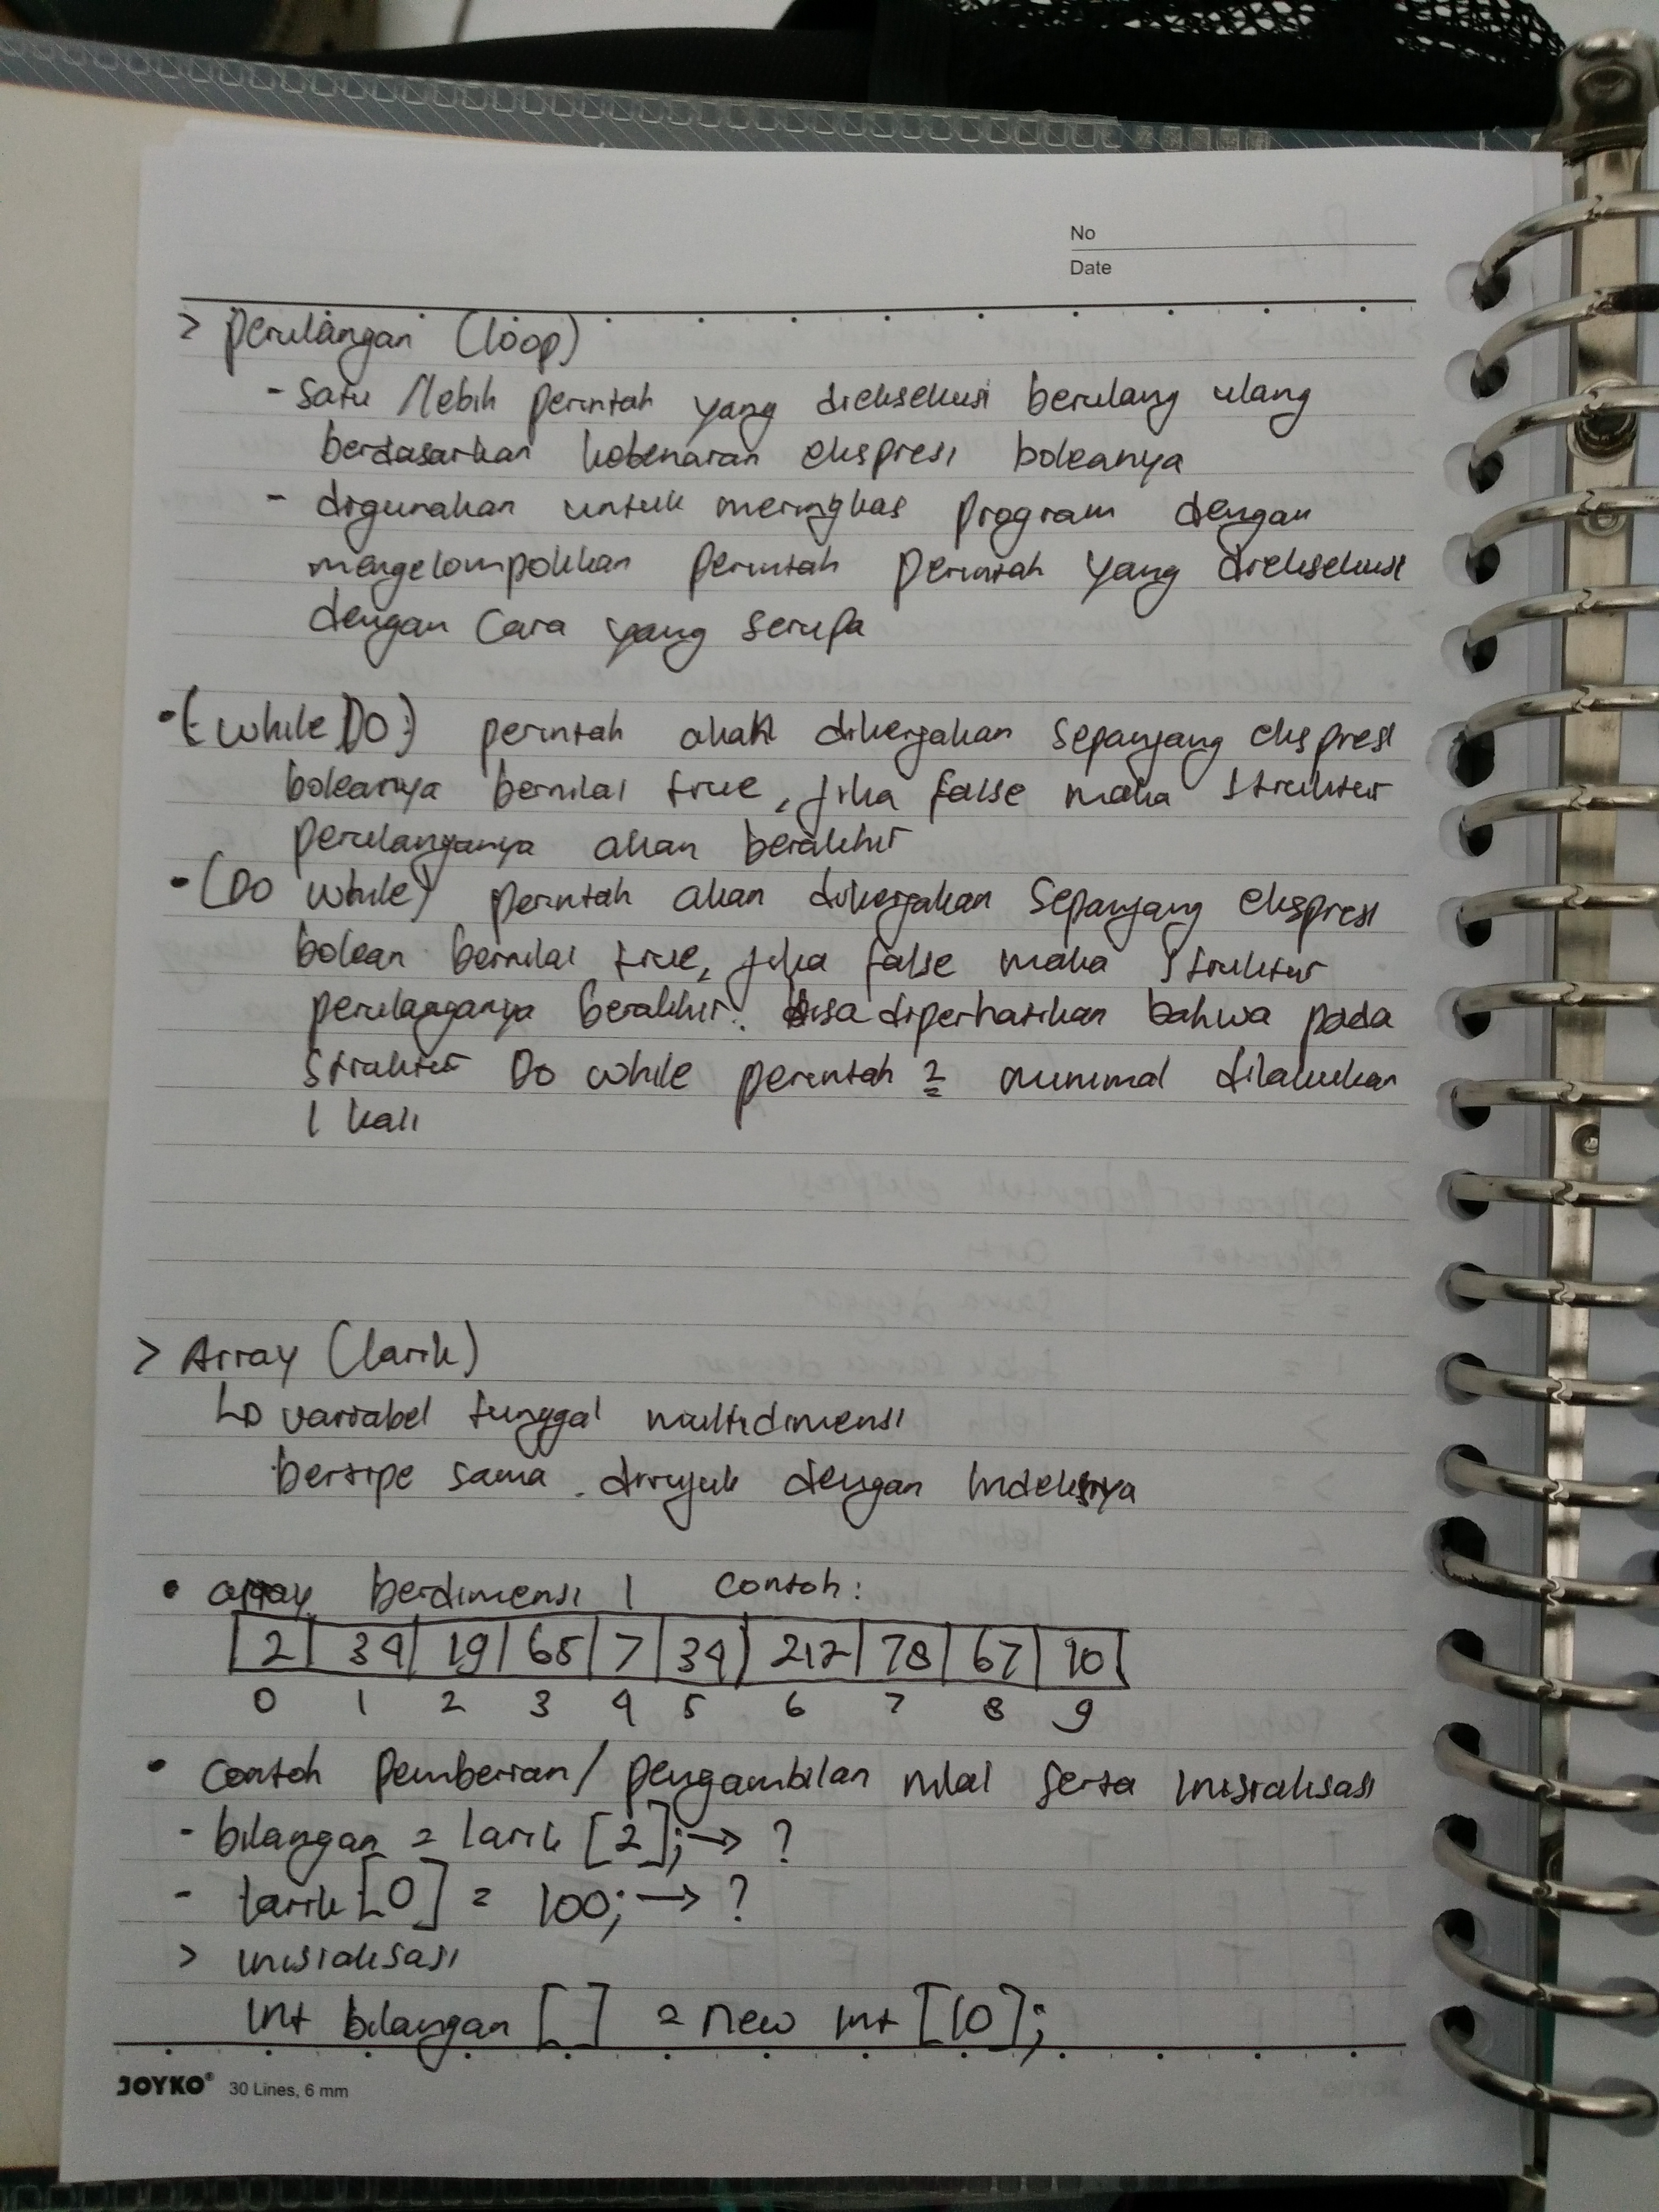 No
Date
> perulangan (loop)
- satu /lebih perintah yang dieksekusi berulang ulang
berdasarkan kebenaran ekspresi boleanya
- digunakan untuk meringkas program dengan
mengelompokkan perintah perintah yang dieksekusi
dengan cara yang serupa
• (while DO) perintah akan dikerjakan sepanjang ekspresi
boleanya bernilai true, jika false maka struktur
perulanganya akan berakhir
• (DO while) perintah akan dikerjakan sepanjang ekspresi
bolean bernilai true, jika false maka struktur
perulanganya berakhir. bisa diperhatikan bahwa pada
struktur Do while perintah 2 minimal dilakukan
1 kali
> Array (larik)
↳ variabel tunggal multidimensi
bertipe sama. dirujuk dengan indeksnya
• array berdimensi 1 contoh:
2 34 19 65 7 34 212 78 67 90
0 1 2 3 4 5 6 7 8 9
• contoh pemberian/ pengambilan nilai serta inisialisasi
- bilangan = larik [2]; → ?
- larik [0] = 100; → ?
> inisialisasi
int bilangan [ ] = new int [10];
JOYKO® 30 Lines, 6 mm